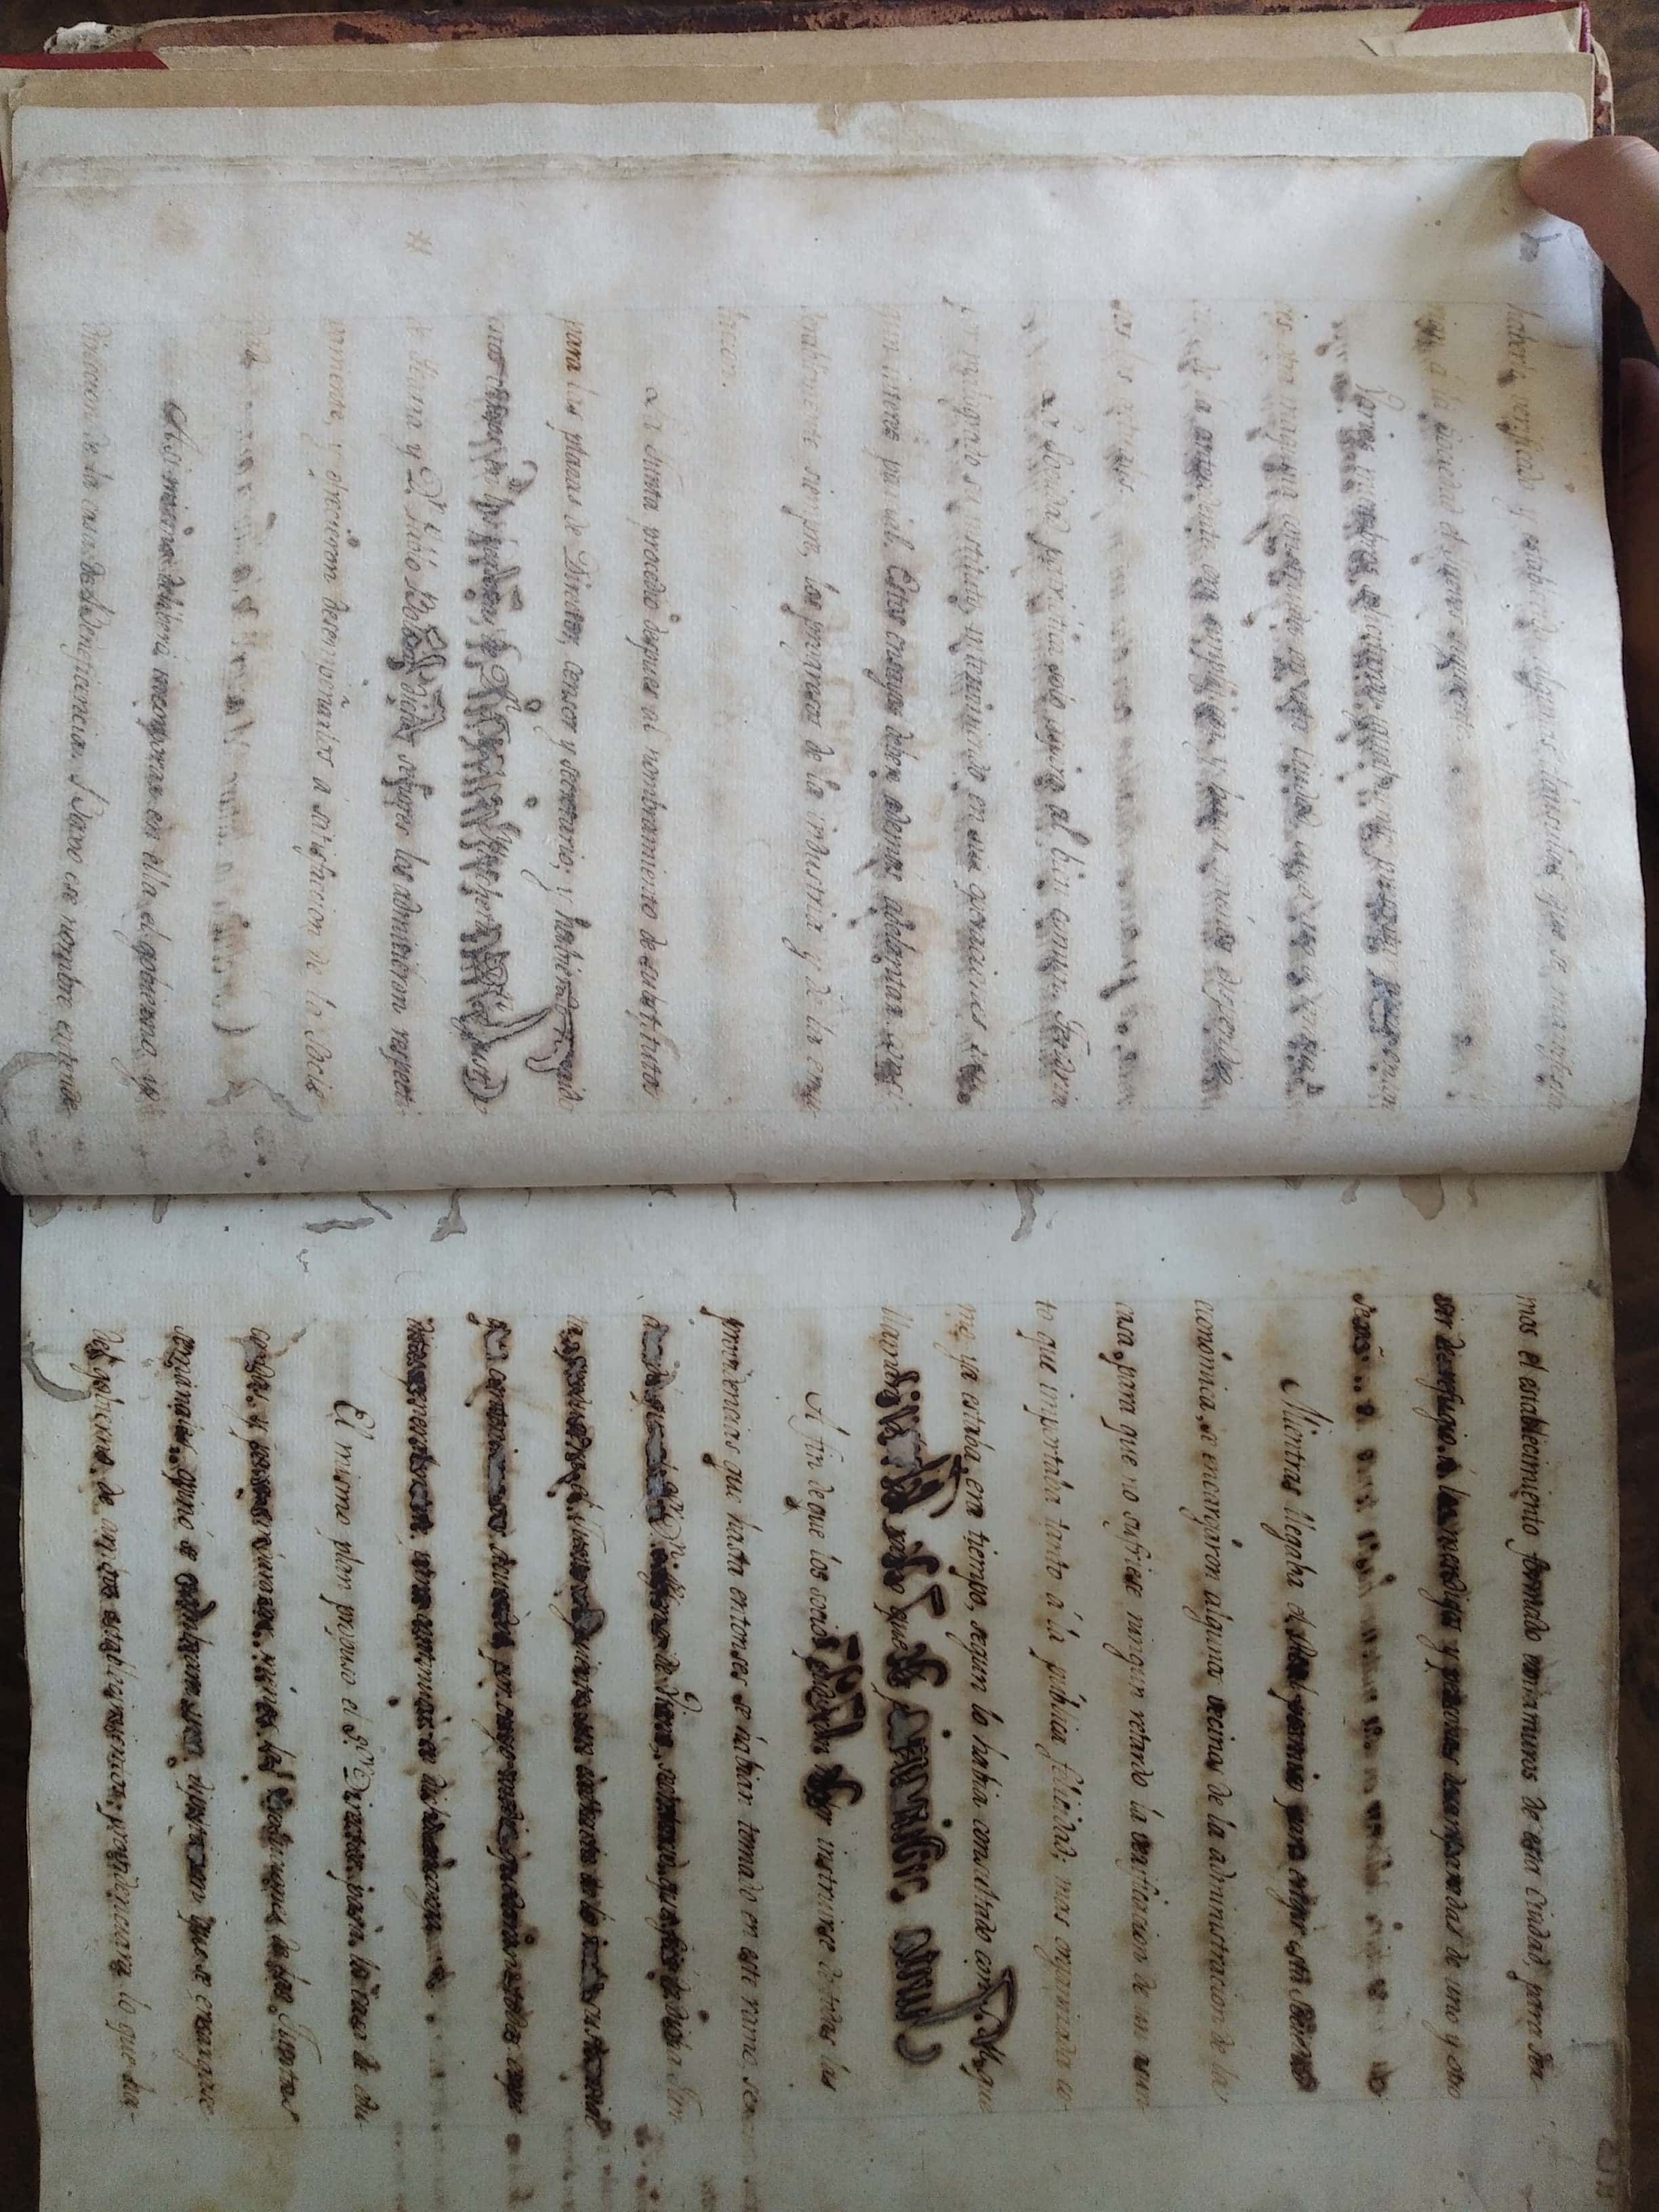 haberlo verificado y establecido algunas clausulas que se manifesta-
rian á la Sociedad el Jueves siguiente.
Varios miembros solicitáron igualmente presentar para enton-
ces otra maquina construida en esta Ciudad, cuyo uso á
de la antecedente era simplificar y hacer ménos dispendio-
sas las actuales.
La Sociedad patriótica solo aspira al bien comun. Tendria
por malogrado su instituto, interviniendo en sus operaciones nin-
gun interés parcial. Estos ensayos deben además adelantar consi-
derablemente siempre, los progresos de la industria y de la emu-
lacion.
La Junta procedió despues al nombramiento de substitutos
para las plazas de Director, Censor y secretario; y habiendo recaido
estos en las personas de D.n
de Ibarra y D.n Pablo dichos señores los admitiéron respecti-
vamente, y ofreciéron desempeñarlos á satisfaccion de la Socie-
dad.
Asi mismo deliberó incorporar en ella el gobierno y
direccion de la casa de Beneficencia. Baxo ese nombre entende-
mos el establecimiento formado extramuros de esta Ciudad, para ser-
vir de refugio á los mendigos y personas desamparadas de uno y otro
sexô.
Mientras llegaba el Real permiso para erigir esta Sociedad
económica, se encargáron algunos vecinos de la administracion de la
casa, para que no sufriese ningun retardo la verificacion de un asun-
to que importaba tanto á la pública felicidad; mas organizada co-
mo ya estaba, era tiempo, segun lo habia consultado con S. M. que
llamara á ramo que
A fin de que los socios pudieran mejor instruirse de todas las
providencias que hasta entonses se habian tomado en este ramo, se
que el S.or D.n de Viana, secretario que fué de dicha Jun-
ta, produxera el Jueves siguiente un extracto de lo mas sustancial
que contenian sus acuerdos, por cuyo medio quedarian todos impe-
didos generalmente para continuar en dicho encargo.
El mismo plan propuso el S.or Director para la casa de edu-
candas, y para embarazar ménos las resoluciones de las Juntas
semanales, opinó se nombrara una diputacion que se encargase
del gobierno de ambos establecimientos; providenciara lo que ha-